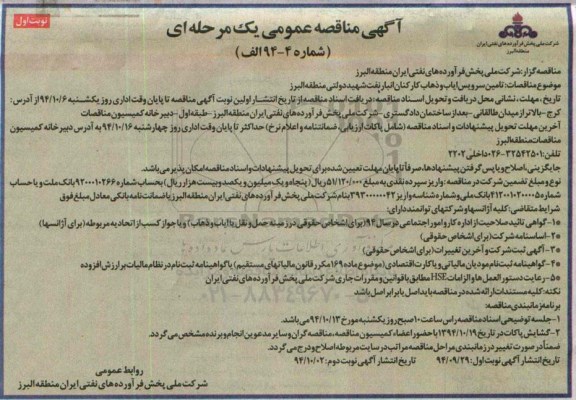 نوبت اول
شرکت ملی پخش فرآورده های نفتی ایران
منطقه البرز
آگهی مناقصه عمومی یک مرحله ای
(شماره ۴-۹۴ الف)
مناقصه گزار: شرکت ملی پخش فرآورده های نفتی ایران منطقه البرز
موضوع مناقصات: تامین سرویس ایاب و ذهاب کارکنان انبار نفت شهید دولتی منطقه البرز
تاریخ، مهلت، نشانی محل دریافت و تحویل اسناد مناقصه: دریافت اسناد مناقصه از تاریخ انتشار اولین نوبت آگهی مناقصه تا پایان وقت اداری روز یکشنبه ۹۴/۱۰/۶ از آدرس:
کرج - بالاتر از میدان طالقانی - بعد از ساختمان دادگستری - شرکت ملی پخش فرآورده های نفتی ایران منطقه البرز - طبقه اول - دبیرخانه کمیسیون مناقصات
آخرین مهلت تحویل پیشنهادات و اسناد مناقصه (شامل پاکات ارزیابی، ضمانتنامه و اعلام نرخ) حداکثر تا پایان وقت اداری روز چهارشنبه ۹۴/۱۰/۱۶ به آدرس دبیرخانه کمیسیون
مناقصات منطقه البرز
تلفن: ۳۲۵۴۲۵۰۱-۰۲۶ داخلی ۲۲۰۲
جایگزینی، اصلاح و یا پس گرفتن پیشنهادها، صرفاً تا پایان مهلت تعیین شده برای تحویل پیشنهادات و اسناد مناقصه امکان پذیر می باشد.
نوع و مبلغ تضمین شرکت در مناقصه: واریز سپرده نقدی به مبلغ ۵۱/۱۲۰/۰۰۰ ریال (پنجاه و یک میلیون و یکصد و بیست هزار ریال) به حساب شماره ۹۲۰۰۰۱۰۲۶۶ بانک ملت و یا حساب
شماره ۴۱۲۰۰۱۰۲۰۰۰۵ بانک ملی و شماره شناسه واریز ۳۹۳۰۰۰۰۰۰۴۲ بنام شرکت ملی پخش فرآورده های نفتی ایران منطقه البرز یا ضمانتنامه بانکی معادل مبلغ فوق
شرایط متقاضی: کلیه آژانسها و شرکتهای توانمند دارای:
۱*- گواهی تائید صلاحیت از اداره کار و امور اجتماعی در سال ۹۴ (برای اشخاص حقوقی در زمینه حمل و نقل یا ایاب و ذهاب) و یا جواز کسب از اتحادیه مربوطه (برای آژانسها)
۲*- اساسنامه شرکت (برای اشخاص حقوقی)
۳*- آگهی ثبت شرکت و آخرین تغییرات (برای اشخاص حقوقی)
۴*- گواهینامه ثبت نام مودیان مالیاتی و یا کارت اقتصادی (موضوع ماده ۱۶۹ مکرر قانون مالیاتهای مستقیم) یا گواهینامه ثبت نام در نظام مالیات بر ارزش افزوده
۵*- رعایت دستورالعمل ها و الزامات HSE مطابق با قوانین و مقررات جاری شرکت ملی پخش فرآورده های نفتی ایران
نکته: کلیه مستندات ارائه شده در مناقصه با ید اصل یا برابر اصل باشد
برنامه زمانبندی مناقصه:
۱- جلسه توضیحی اسناد مناقصه راس ساعت ۱۰ صبح روز یکشنبه مورخ ۹۴/۱۰/۱۳ می باشد.
۲- گشایش پاکات در تاریخ ۱۳۹۴/۱۰/۱۹ با حضور اعضاء کمیسیون مناقصه، مناقصه گران و سایر مدعوین انجام و برنده مشخص می گردد.
ضمناً در صورت تغییر در زمانبندی مراحل مناقصه مراتب در سایت مربوطه اصلاح و درج می گردد.
تاریخ انتشار آگهی نوبت اول: ۹۴/۰۹/۲۹ تاریخ انتشار آگهی نوبت دوم: ۹۴/۱۰/۰۲
روابط عمومی
شرکت ملی پخش فرآورده های نفتی ایران منطقه البرز
۰۲۱-۸۸۳۴۹۶۷۰-۵